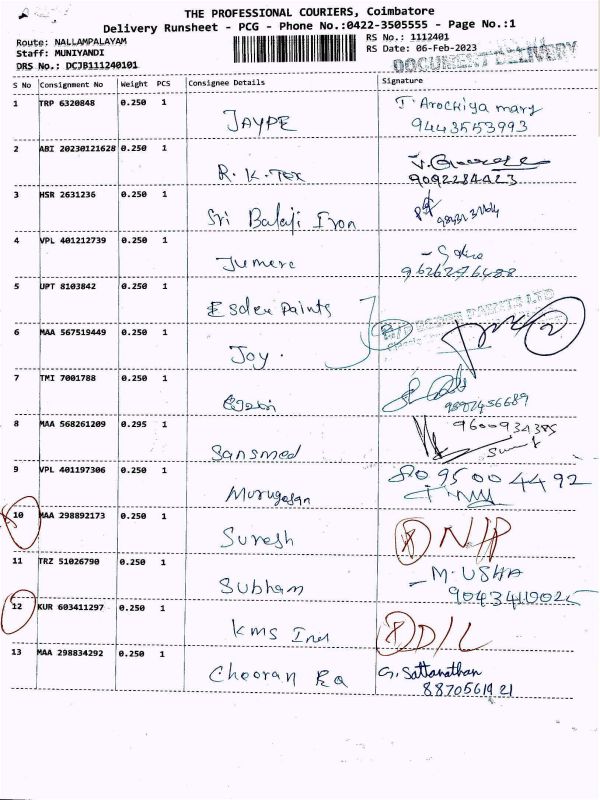 THE PROFESSIONAL COURIERS, Coimbatore
Delivery Runsheet - PCG - Phone No.:0422-3505555 - Page No.:1
Route: NALLAMPALAYAM
RS No.: 1112401
Staff: MUNIYANDI
RS Date: 06-Feb-2023
DRS No.: DCJB111240101
DOCUMENT DELIVERY
S No Consignment No Weight PCS Consignee Details Signature
1 TRP 6320848 0.250 1 JAYPE T. Arockiya mary
9443553993
2 ABI 20230121628 0.250 1 R.K.Tex
9092284423
3 HSR 2631236 0.250 1 Sri Balaji Iron
4 VPL 401212739 0.250 1 Jumere
9626276488
5 UPT 8103842 0.250 1 Esdee Paints
6 MAA 567519449 0.250 1 Joy.
7 TMI 7001788 0.250 1
9597456689
8 MAA 568261209 0.295 1 Sansmed 9600934385
Sumit
9 VPL 401197306 0.250 1 Murugesan 8095004492
10 MAA 298892173 0.250 1 Suresh N/P
11 TRZ 51026790 0.250 1 Subham M. USHA
90434119025
12 KUR 603411297 0.250 1 KMS Iner D/L
13 MAA 298834292 0.250 1 Cheeran Ra G. Sattanathan
8870561421